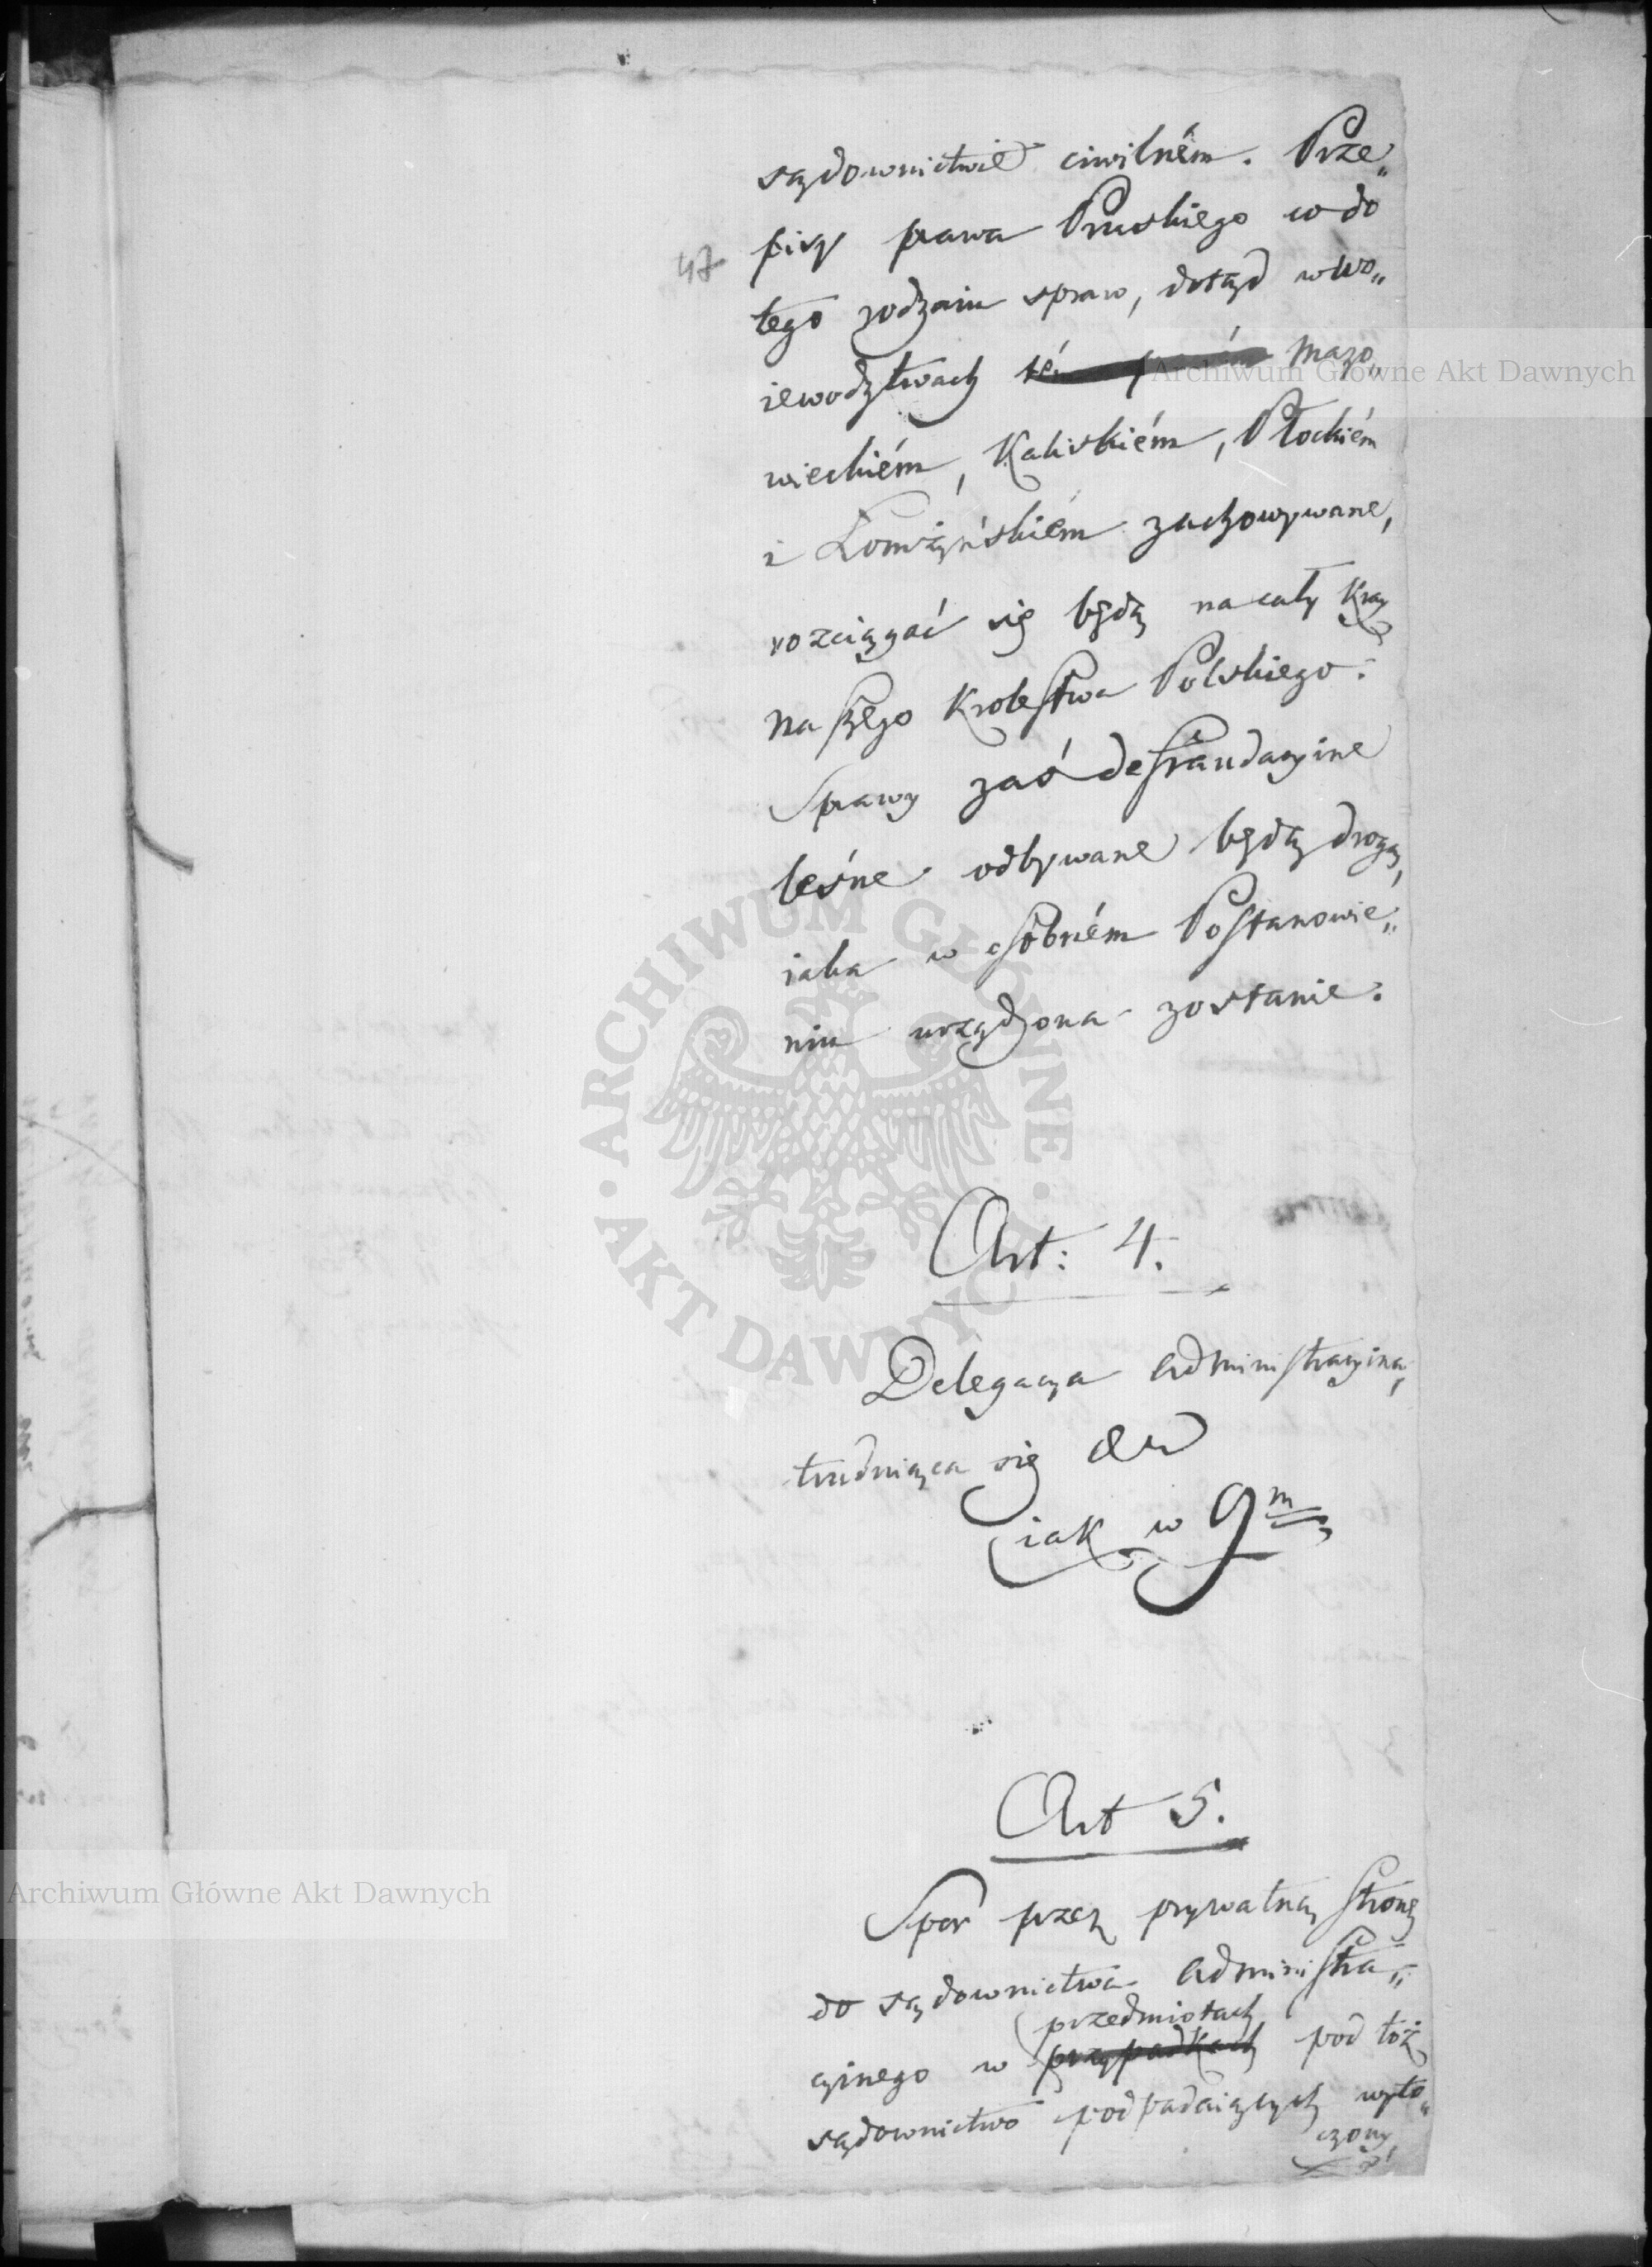 sądownictwie ciwilném. Prze„
pisy prawa Pruskiego co do
47
tego rodzaiu spraw, dotąd w wo„
iewodztwach Mazo„
wieckiém, Kaliskiém, Płockiém
i Łomżyńskiém zachowywane,
rozciągać się będą na cały Kray
naszego Krolestwa Polskiego.
Sprawy zaś defraudacyine
leśne odbywane będą drogą,
iaka w osobném Postanowie„
niu urządzona zostanie.
Art: 4.
Delegacya administracyina,
trudniąca się
iak w 9m
Art 5.
Spor przez prywatną stronę
do sądownictwa administra„
przedmiotach
cyinego w przypadkach pod toż
sądownictwo podpadaiących wyto„
czony,
Archiwum Główne Akt Dawnych
Archiwum Główne Akt Dawnych
ARCHIWUM GŁÓWNE AKT DAWNYCH